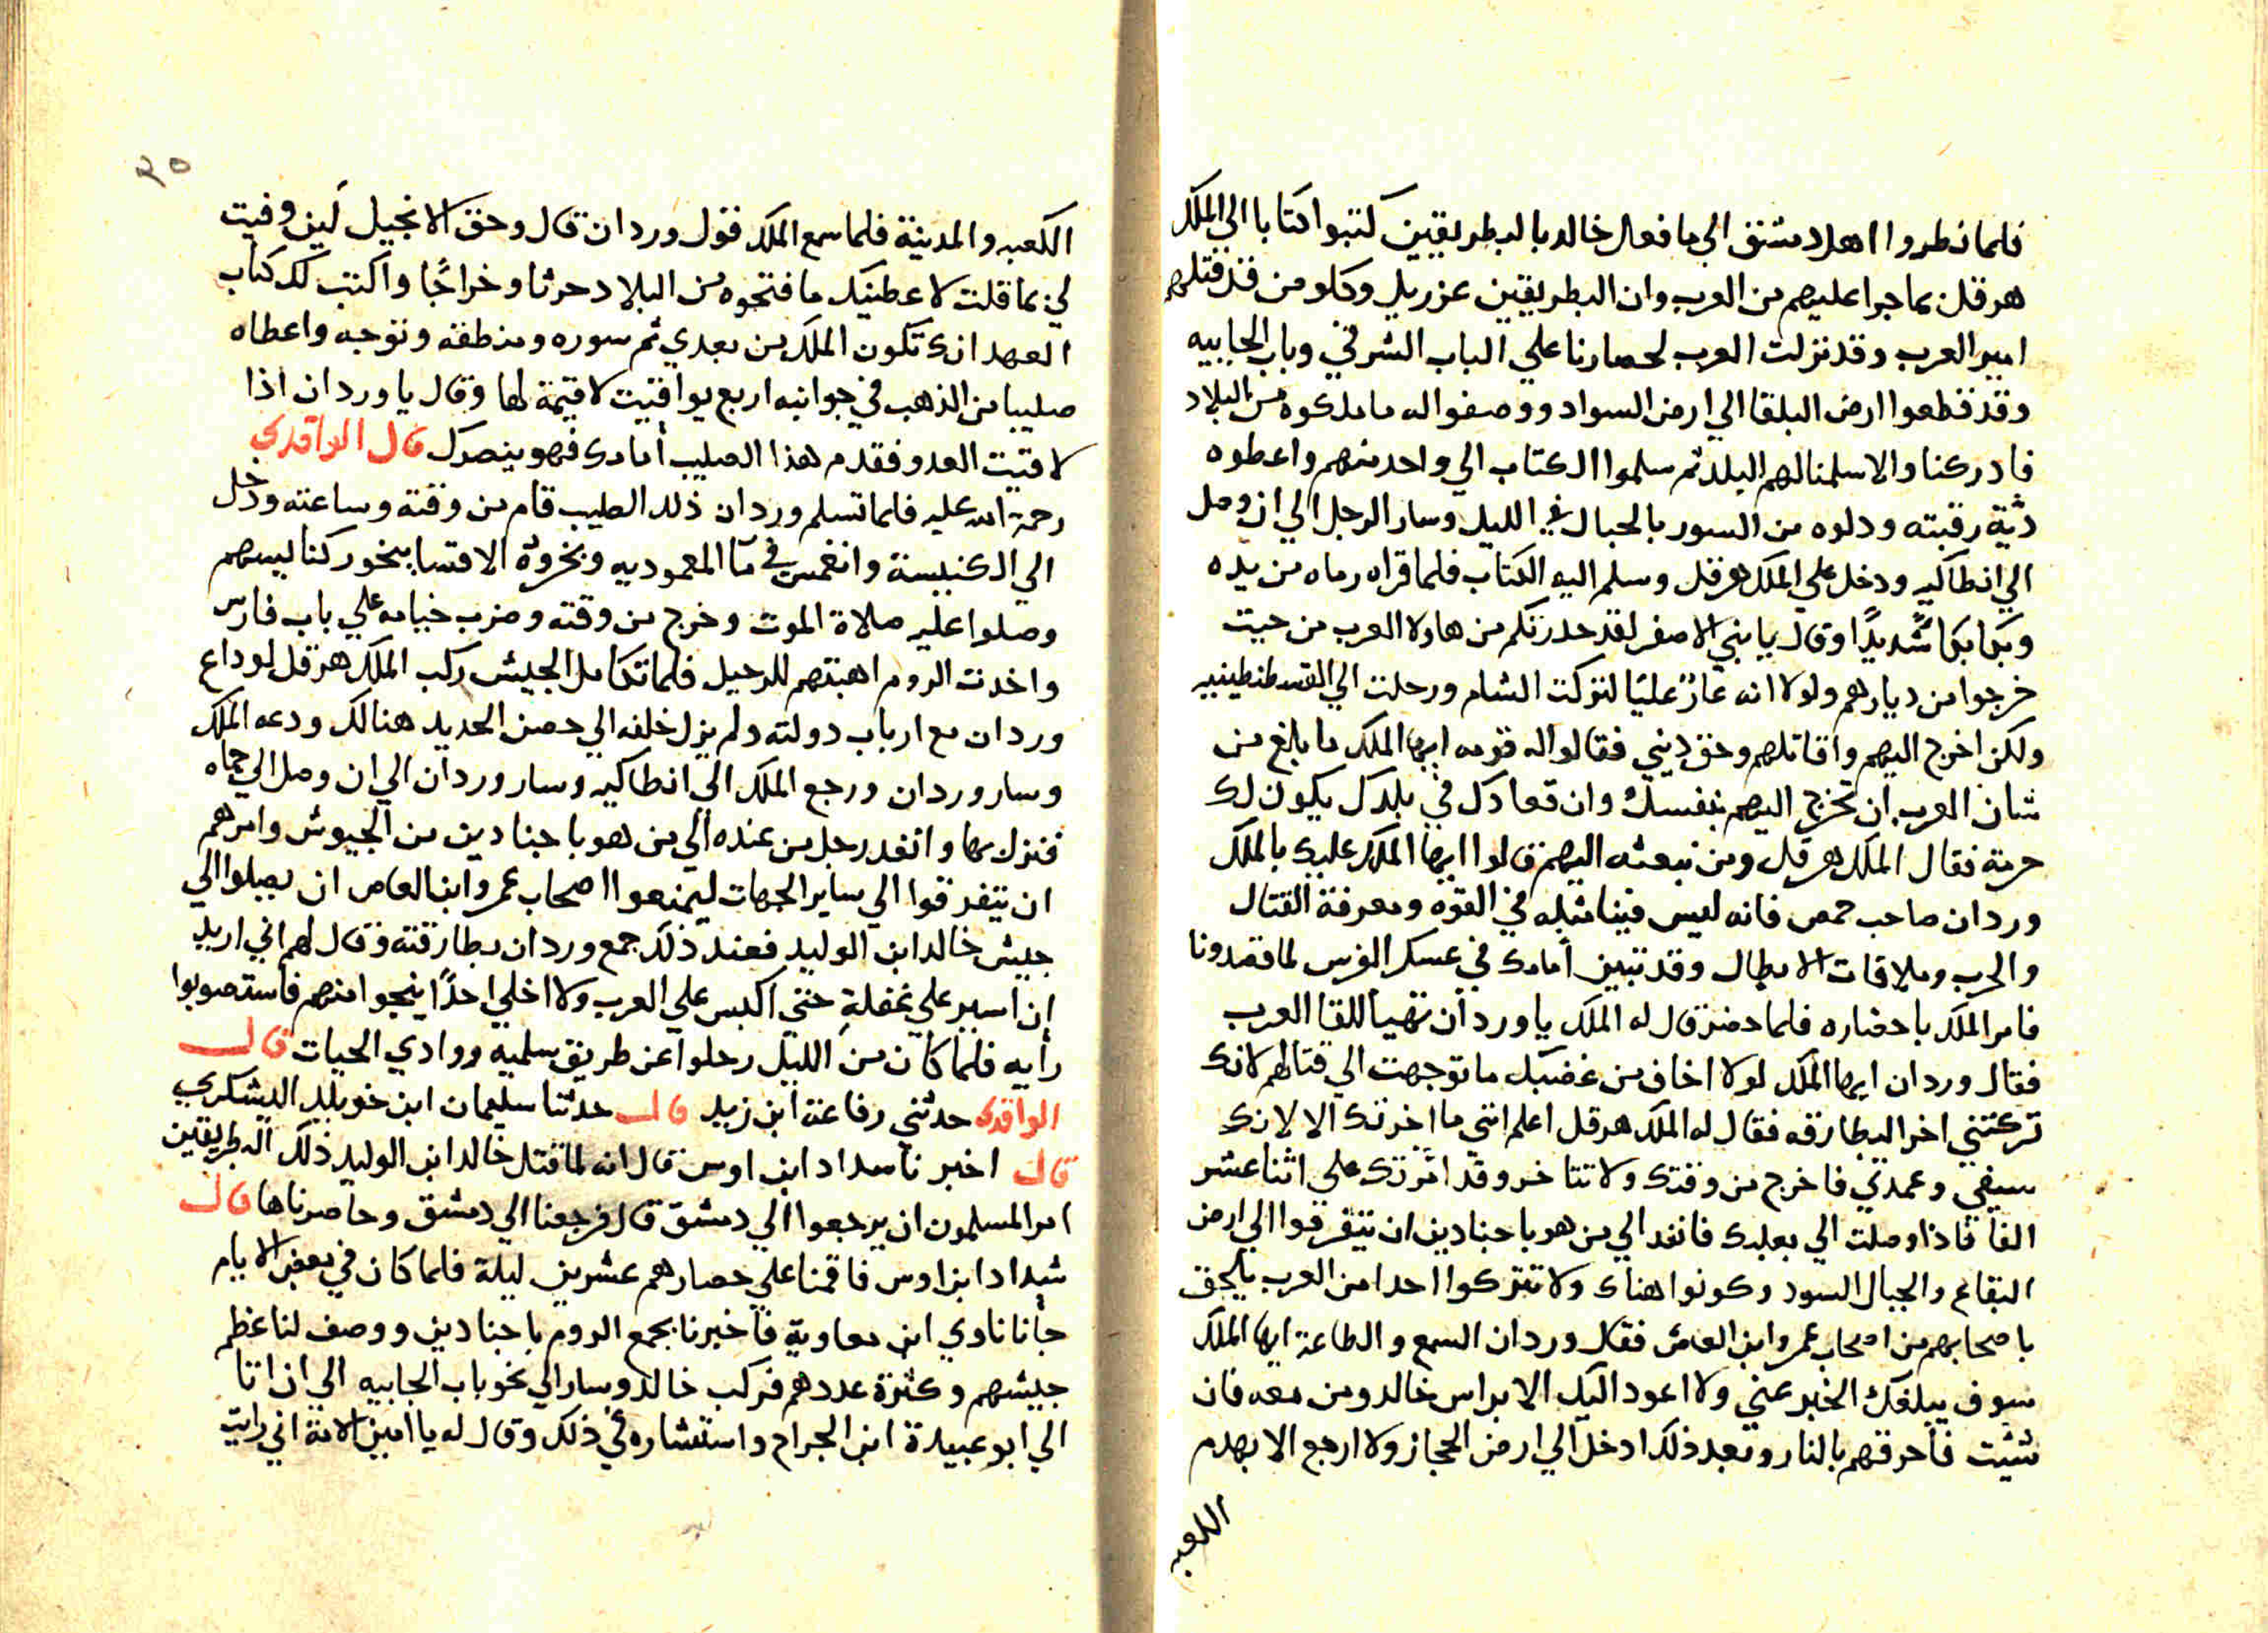 فلما نظروا اهل دمشق الي ما فعل خالد بالبطريقين كتبوا كتابا الي الملك
هرقل بما جرا عليهم من العرب وان البطريقين عزريل وكلو من قد قتلهم
امير العرب وقد نزلت العرب لحصارنا علي الباب الشرقي وباب الجابيه
وقد قطعوا ارض البلقا الي ارض السواد ووصفوا له ما ملكوه من البلاد
فادركنا والا سلمنا لهم البلد ثم سلموا الكتاب الي واحد منهم واعطوه
دية رقبته ودلوه من السور بالحبال في الليل وسار الرجل الي ان وصل
الي انطاكيه ودخل علي الملك هرقل وسلم اليه الكتاب فلما قراه رماه من يده
وبكا بكاً شديدًا وقال يا بني الاصفر لقد حدرتكم من هاولا العرب من حيت
خرجوا من ديارهم ولولا انه عارً عليَا لتركت الشام ورحلت الي القسطنطينيه
ولكن اخرج اليهم واقاتلهم وحق ديني فقالوا له قومه ايها الملك ما بلغ من
شان العرب ان تخرج اليهم بنفسك وان قعادك في بلدك يكون لك
حرمة فقال الملك هرقل ومن نبعثه اليهم قالوا ايها الملك عليك بالملك
وردان صاحب حمص فانه ليس فينا مثله في القوه ومعرفة القتال
والحرب وملاقات الابطال وقد تبين أمامك في عسكر الفرس لما قصدونا
فامر الملك باحضاره فلما حضر قال له الملك يا وردان تهيا للقا العرب
فقال وردان ايها الملك لولا اخاف من غضبك ما توجهت الي قتالهم لانك
تركتني اخر البطارقه فقال له الملك هرقل اعلم انني ما اخرتك الا لانك
سيفي وعمدتي فاخرج من وقتك ولا تتاخر وقد اثرتك علي اثنا عشر
الفاً فاذا وصلت الي بعلبك فانفد الي من هو باجنادين ان يتفرقوا الي ارض
البقاع والجبال السود وكونوا هناك ولا تتركوا احدا من العرب يلحق
باصحابهم من اصحاب عمرو ابن العاص فقال وردان السمع والطاعة ايها الملك
سوف يبلغك الخبر عني ولا اعود اليك الا براس خالد ومن معه فان
شئيت فاحرقهم بالنار وبعد ذلك ادخل الي ارض الحجاز ولا ارجع الا بهدم
الكعبه
٢٥
الكعبه والمدينة فلما سمع الملك قول وردان قال وحق الانجيل لين وفيت
لي بما قلت لاعطينك ما فتحوه من البلاد حرثا وخراجًا واكتب لك كتاب
العهد انك تكون الملك من بعدي ثم سوره ومنطقه وتوجه واعطاه
صليبا من الذهب في جوانبه اربع يواقيت لا قيمة لها وقال يا وردان اذا
لاقيت العدو فقدم هذا الصليب أمامك فهو ينصرك قال الواقدي
رحمة الله عليه فلما تسلم وردان ذلك الصليب قام من وقته وساعته ودخل
الي الكنيسة وانغمس في مآ المعموديه وبخروه الاقسا ببخور كنايسهم
وصلوا عليه صلاة الموت وخرج من وقته وضرب خيامه علي باب فارس
واخدت الروم اهبتهم للرحيل فلما تكامل الجيش ركب الملك هرقل لوداع
وردان مع ارباب دولته ولم يزل خلفه الي حصن الحديد هنالك ودعه الملك
وسار وردان ورجع الملك الي انطاكيه وسار وردان الي ان وصل الي حماه
فنزل بها وانفد رجل من عنده الي من هو باجنادين من الجيوش وامرهم
ان يتفرقوا الي ساير الجهات ليمنعوا اصحاب عمرو ابن العاص ان يصلوا الي
جيش خالد ابن الوليد فعند ذلك جمع وردان بطارقته وقال لهم اني اريد
ان اسير علي غفلةٍ حتي اكبس علي العرب ولا اخلي احدًا ينجوا منهم فاستصوبوا
رأيه فلما كان من الليل رحلوا عن طريق سلميه ووادي الحيات قال
الواقدي حدثني رفاعة ابن زيد قال حدثنا سليمان ابن خويلد اليشكري
قال اخبرنا سداد ابن اوس قال انه لما قتل خالد ابن الوليد ذلك البطريقين
امر المسلمون ان يرجعوا الي دمشق قال فرجعنا الي دمشق وحاصرناها قال
شداد ابن اوس فاقمنا علي حصارهم عشرين ليلة فلما كان في بعض الايام
جأنا نادي ابن معاوية فاخبرنا بجمع الروم باجنادين ووصف لنا عظم
جيشهم وكثرة عددهم فركب خالد وسار الي نحو باب الجابيه الي ان اتا
الي ابو عبيدة ابن الجراح واستشاره في ذلك وقال له يا امين الامة اني رايت